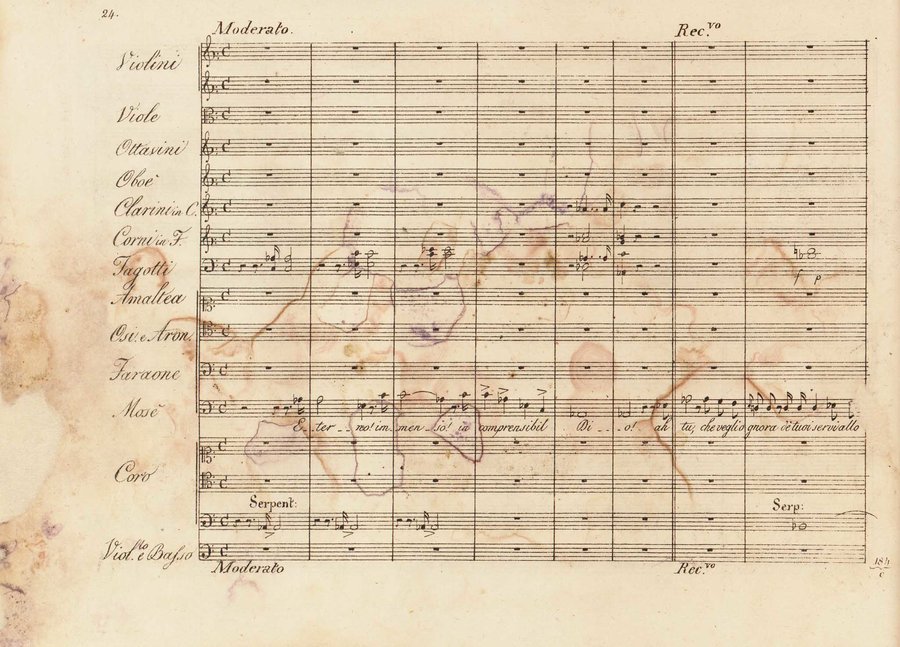 24.
Moderato. Rec.vo
Violini
Viole
Ottavini
Oboè
Clarini in C.
Corni in F.
Fagotti
f p
Amaltea
Osi. e Aron.
Faraone
Mosè
E - ter - no! im - men - so! in comprensibil Di - o! ah tu, che veglio gnora de' tuoi servi allo
Coro
Serpent: Serp:
Viol.llo e Basso
Moderato Rec.vo
184
c